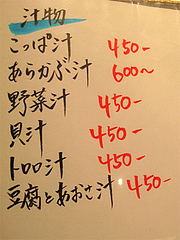 汁物
こっぱ汁 450-
あらかぶ汁 600～
野菜汁 450-
貝汁 450-
トロロ汁 450-
豆腐とあおさ汁 450-